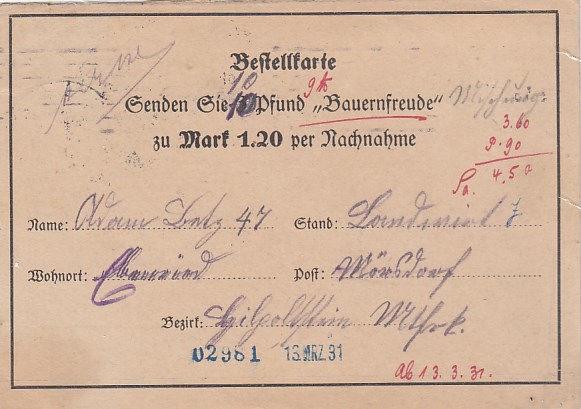 Bestellkarte
10 gtk
Senden Sie 10 Pfund „Bauernfreude“ Mischung
zu Mark 1.20 per Nachnahme
3.60
P. 90
Sa. 4,50
Name: Adam Betz 47 Stand: Landwirt
Wohnort: Post: Mörsdorf
Bezirk: Hilpoltstein Mfrk.
02981 13.MRZ.31
ab 13.3.31.